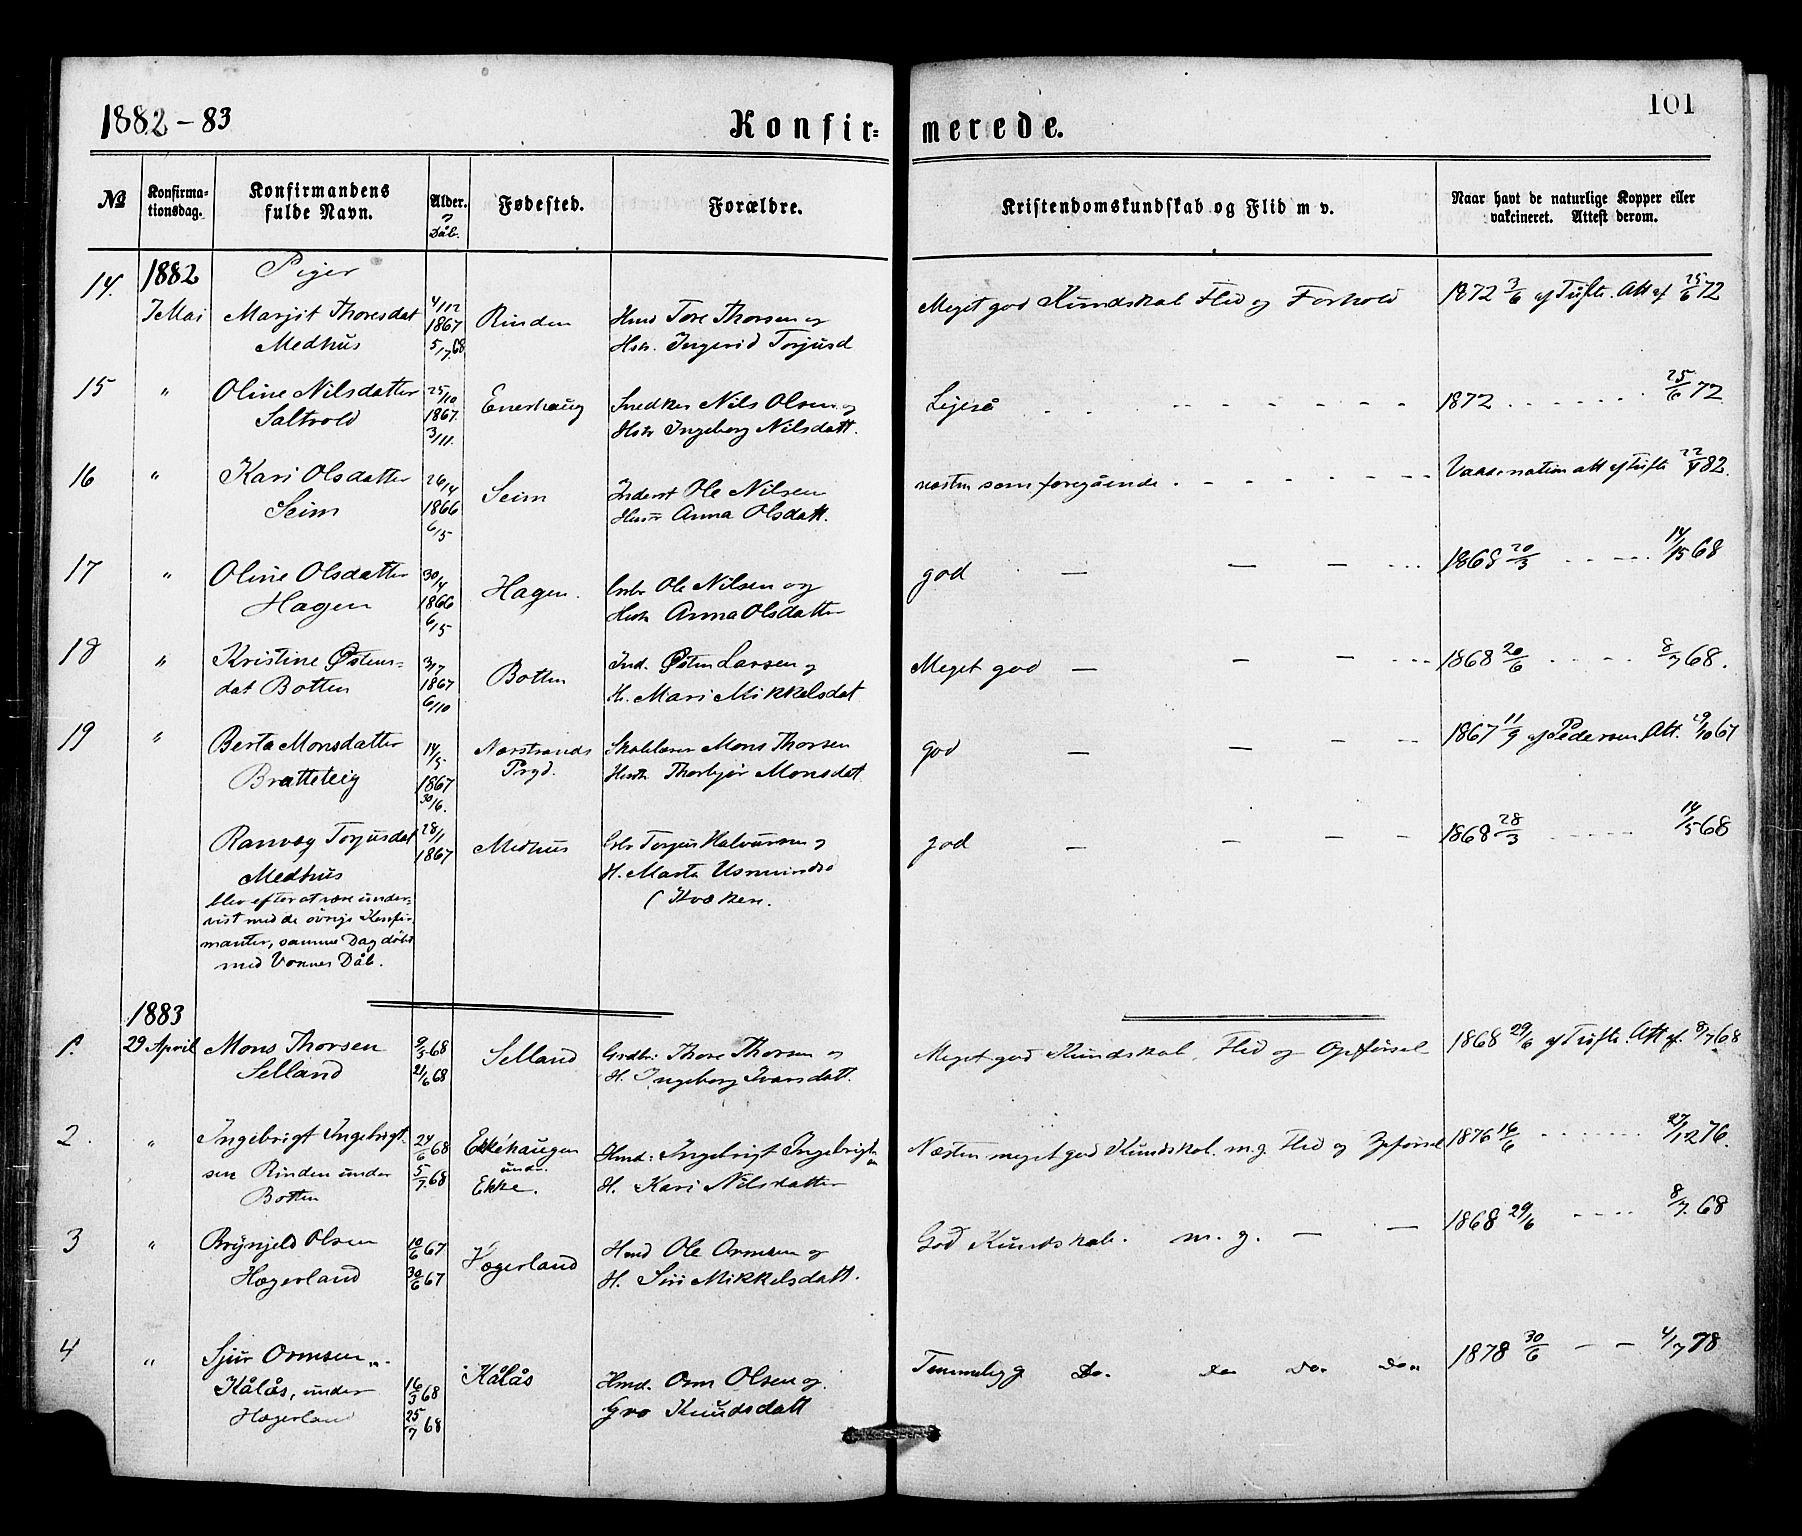 1882-83
Konfir=
merede.
101
No
Konfirma-
tionsdag.
Konfirmandens
fulde Navn.
Alder.
Dåb.
Fødested.
Forældre.
Kristendomskundskab og Flid m v.
Naar havt de naturlige Kopper eller
vakcineret. Attest derom.
1882 Piger
14. 7 Mai Marjit Thoresdat 4/12 1867 5/7.68 Rinden Hmd Tore Thorsen og Meget god Kundskab Flid og Forhold 1872 3/6 af Tufte. Att af 25/6 72
Medhus Hstr. Ingerid Torjusd
15 " Oline Nilsdatter 25/10 1867. 3/11. Enerhaug Snedker Nils Olsen og Ligeså 1872 25/6 72
Saltvold Hstr Ingeborg Nilsdatt.
16 " Kari Olsdatter 26/4 1866 6/5 Seim Inderst Ole Nilsen næsten som foregående. Vaccination att af Tufte 82.
Seim Anna Olsdatt.
17 " Oline Olsdatter 30/4 1866 6/5 Hagen. Ole Nilsen og god — — — 1868 20/3 14/5 68
Hagen Hstr Anna Olsdatter
18 " Kristine Østens- 3/7 1867 6/10 Botten Ind. Østen Larsen og Meget god — — — 1868 20/6 8/7 68.
dat Botten H. Mari Mikkelsdat
19 " Berta Monsdatter 14/5 1867 30/6. Nærstrands Skolelærer Mons Thorsen god — — — 1867 11/9 af Pedersen Att. 29/10 67
Bratteteig Prgd. Hustr Thorbjør Monsdat
Ranveg Torjusdat 28/1 1867 Medhus Torjus Halvorsen og god — — — 1868 28/3 14/5 68
Medhus H. Marta Usmundsd
blev efter at være under- (Kvækere.
vist med de øvrige Konfir-
manter, samme Dag døbt
med Voxnes Dåb.
1883
1. 29 April Mons Thorsen 9/3 68 21/6 68 Selland Grdbr: Thore Thorsen og Meget god Kundskab, Flid og Opførsel 1868 29/6 af Tufte. Att af. 8/7 68
Selland H. Ingeborg Ivarsdatt.
2. " Ingebrigt Ingebrigt- 24/6 68 5/7 68 Ekkehaugen Hmd: Ingebrigt Ingebrigtsen Næsten meget god Kundskab. m.g. Flid og Opførsel 1876 16/6 27/12 76.
sen Rinden under under H. Kari Nilsdatter
Botten Ekke.
3 " Brynjeld Olsen 10/6 67 30/6 67 Hægerland Hmd Ole Ormsen og God Kundskab. m. g. — — 1868 29/6 8/7. 68
Hægerland H. Siri Mikkelsdatt.
4 " Sjur Ormsen 16/3 68 25/7 68 Kålås Hmd. Orm Olsen og Temmelig g Do. Do Do. Do. 1878 30/6 — — 4/7 78
Kålås, under Gro Knudsdatt
Hægerland